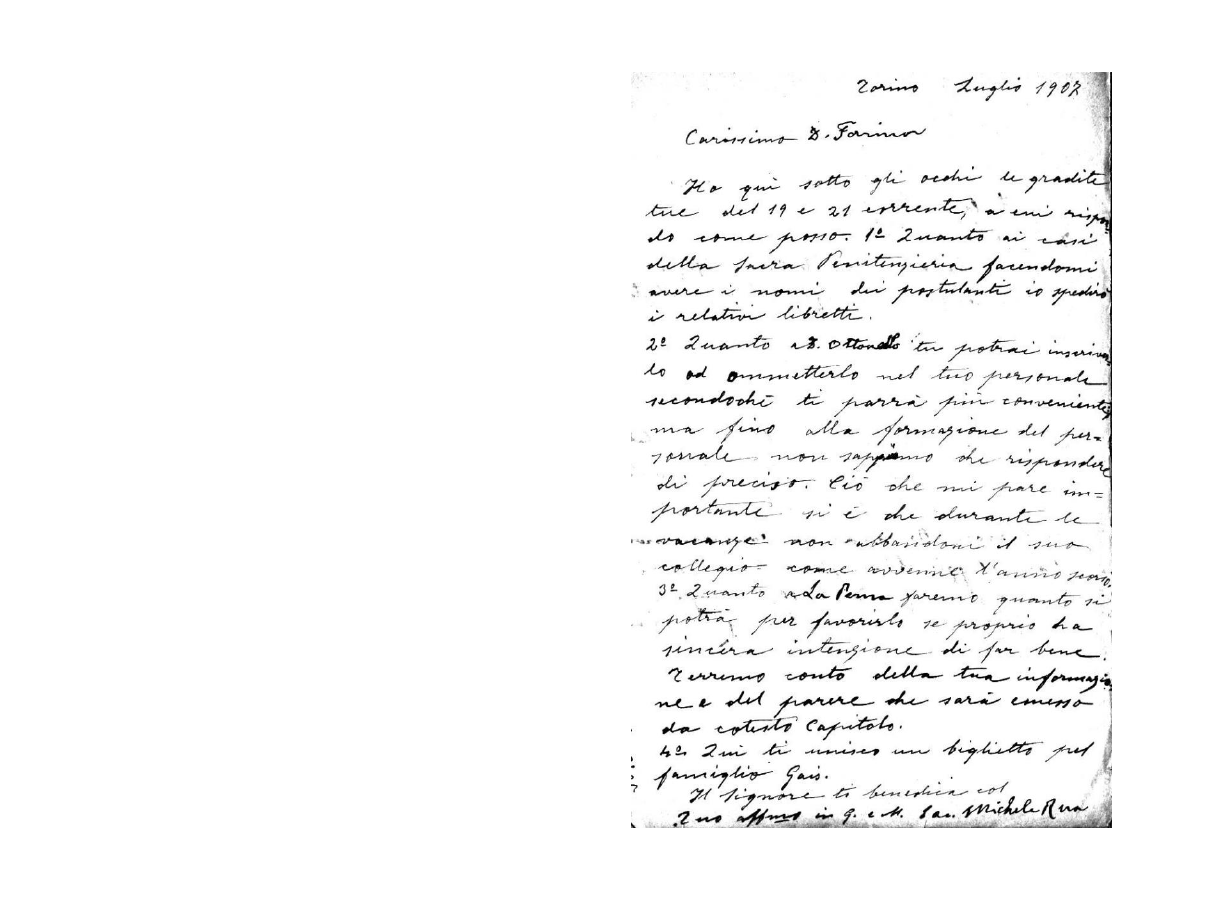 Torino Luglio 1907
Carissimo D. Farina
Ho qui sotto gli occhi le gradite
tue del 19 e 21 corrente, a cui rispon-
do come posso. 1º Quanto ai casi
della Sacra Penitenzieria facendomi
avere i nomi dei postulanti io spedirò
i relativi libretti.
2º Quanto a D. Ottonello tu potrai inscriver
lo od ommetterlo nel tuo personale
secondochè ti parrà più conveniente,
ma fino alla formazione del per=
sonale non sappiamo che rispondere
di preciso. Ciò che mi pare im=
portante si è che durante le
vacanze non abbandoni il suo
collegio come avvenne l'anno scorso.
3º Quanto a La Penna faremo quanto si
potrà per favorirlo se proprio ha
sincera intenzione di far bene.
Terremo conto della tua informazio
ne e del parere che sarà emesso
da cotesto Capitolo.
4º Qui ti unisco un biglietto pel
famiglio Gais.
Il Signore ti benedica col
Tuo affmo in G. e M. Sac. Michele Rua